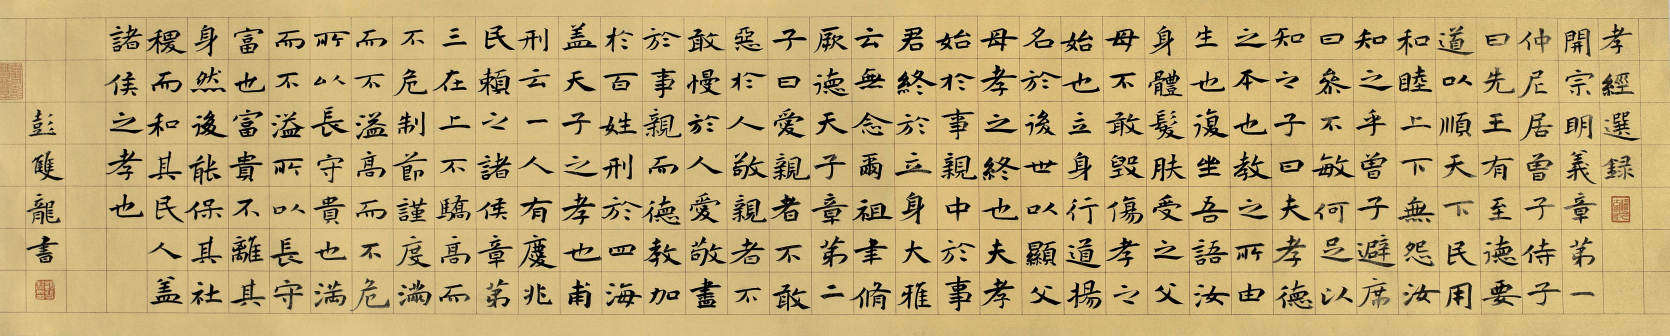 孝經選録
開宗明義章第一
仲尼居曾子侍子
曰先王有至德要
道以順天下民用
和睦上下無怨汝
知之乎曾子避席
曰參不敏何足以
知之子曰夫孝德
之本也教之所由
生也復坐吾語汝
身體髮肤受之父
母不敢毀傷孝之
始也立身行道揚
名於後世以顯父
母孝之終也夫孝
始於事親中於事
君終於立身大雅
云無念爾祖聿脩
厥德天子章第二
子曰愛親者不敢
惡於人敬親者不
敢慢於人愛敬盡
於事親而德教加
於百姓刑於四海
盖天子之孝也甫
刑云一人有慶兆
民賴之諸侯章第
三在上不驕高而
不危制節謹度滿
而不溢高而不危
所以長守貴也满
而不溢所以長守
富也富貴不離其
身然後能保其社
稷而和其民人盖
諸侯之孝也
彭雙龍書